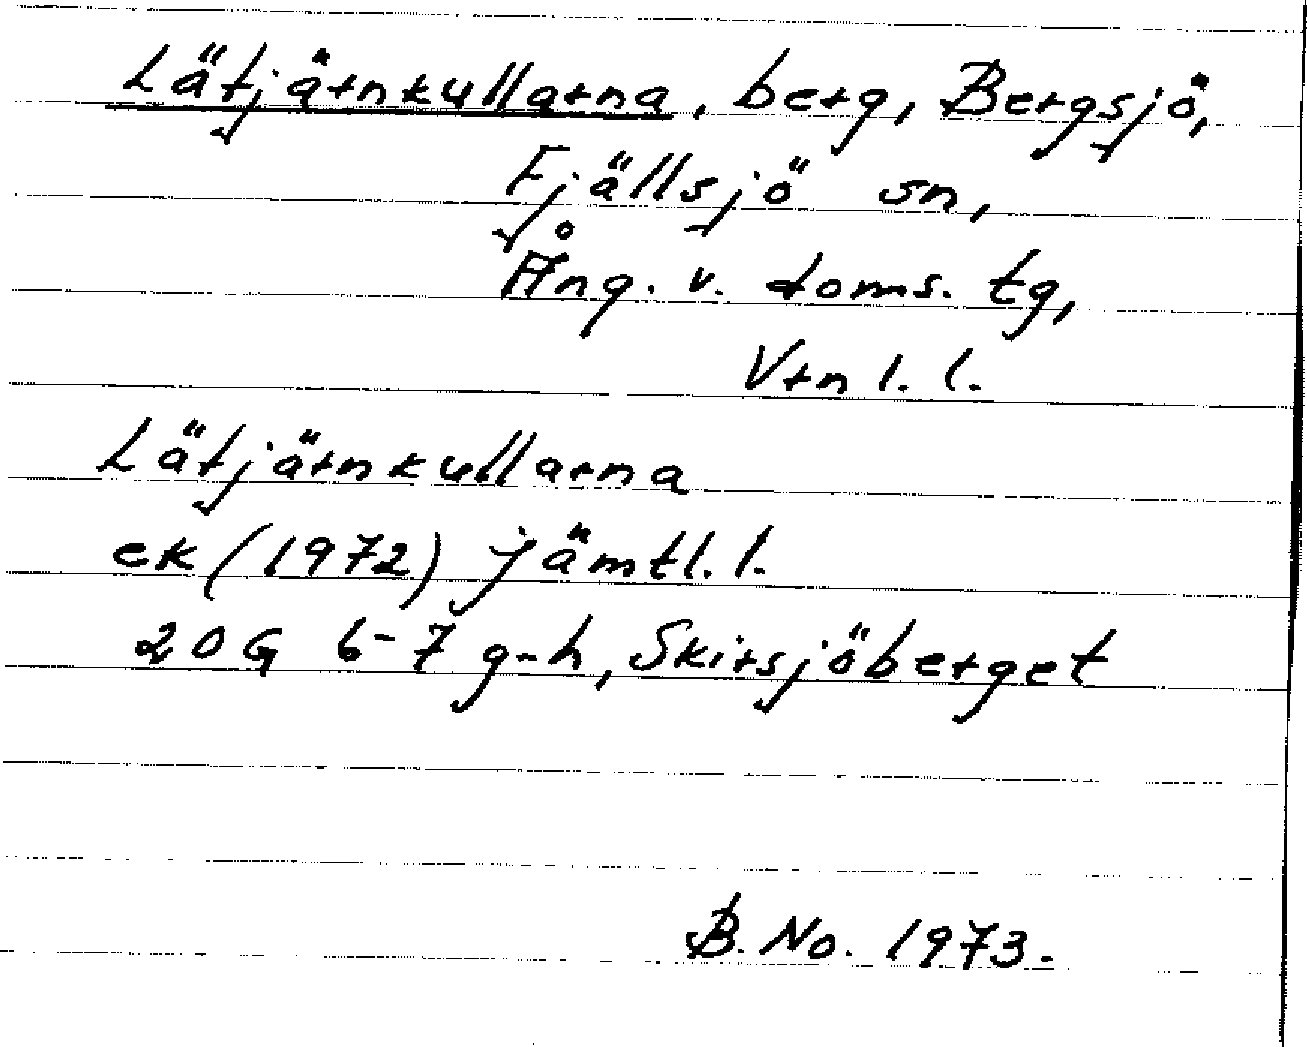 Lätjärnkullarna, berg, Bergsjö,
Fjällsjö sn,
Ång. v. doms. tg,
Vtn l. l.
Lätjärnkullarna
ek (1972) jämtl. l.
20G 6-7 g-h, Skirsjöberget
B. No. 1973.